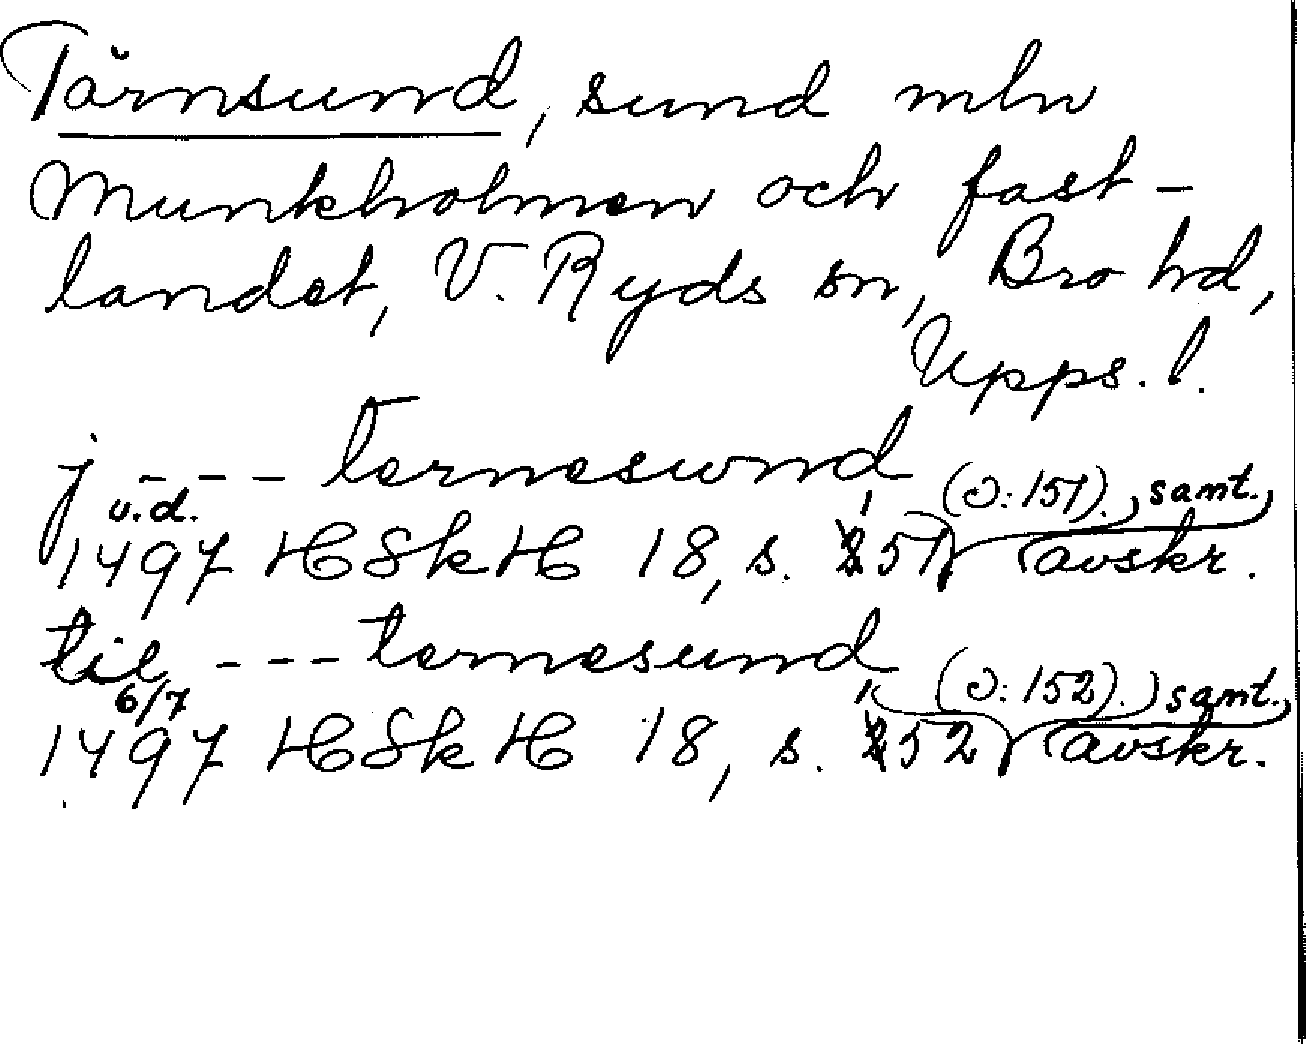 Tärnsund, sund mln
Munkholmen och fast-
landet, V. Ryds sn, Bro hd,
Upps. l.
j - - - ternesund
u.d. (ↄ: 151), samt.
1497 HSkH 18, s. 251 avskr.
til - - - ternesund
6/7 (ↄ: 152), samt.
1497 HSkH 18, s. 252 avskr.